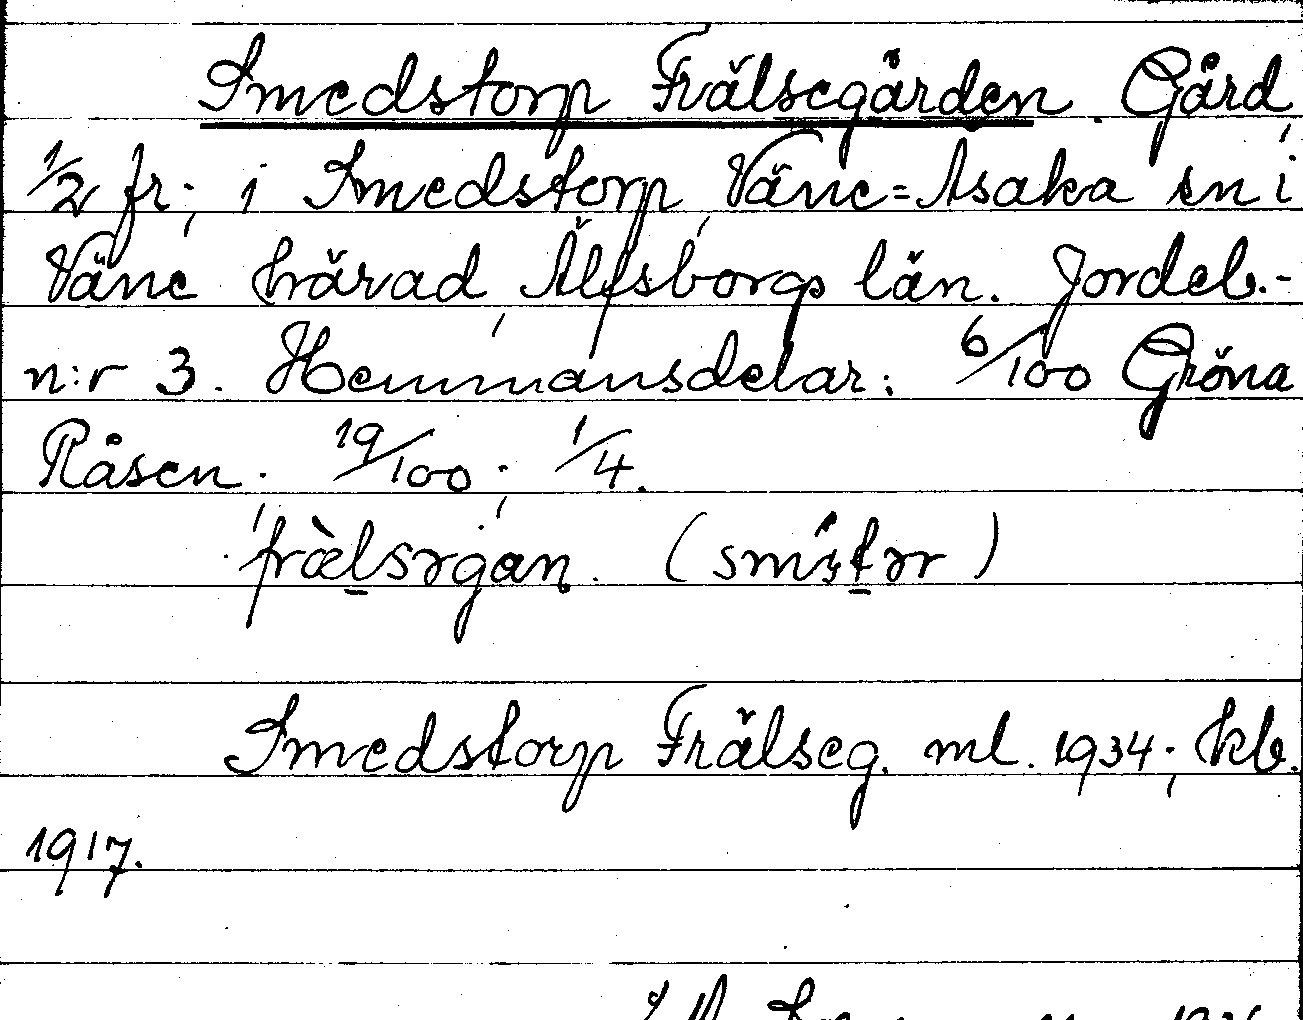 Smedstorp Frälsegården. Gård,
1/2 fr.; i Smedstorp, Väne=Åsaka sn i
Väne härad, Älfsborgs län. Jordeb.-
n:r 3. Hemmansdelar: 6/100 Gröna
Råsen; 19/100; 1/4.
frælsəgan. (smistər)
Smedstorp Frälseg. ml. 1934; kb.
1917.